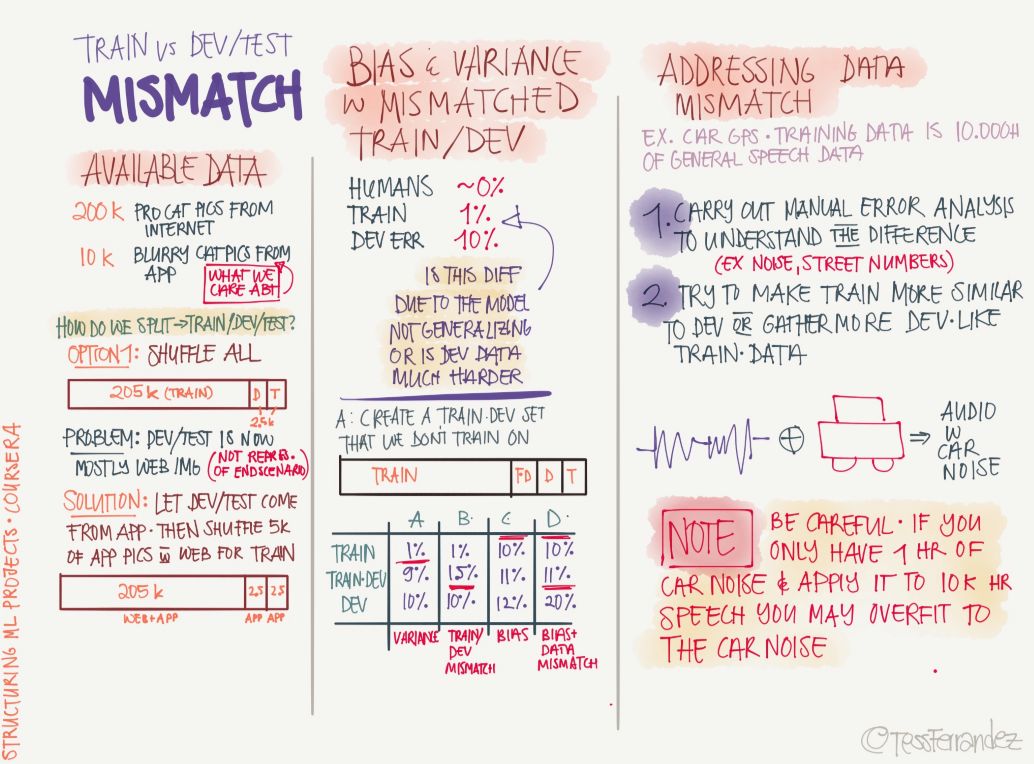 TRAIN vs DEV/TEST
MISMATCH
AVAILABLE DATA
200k PRO CAT PICS FROM
INTERNET
10k BLURRY CAT PICS FROM
APP
WHAT WE
CARE ABT
HOW DO WE SPLIT → TRAIN/DEV/TEST?
OPTION 1: SHUFFLE ALL
205k (TRAIN) D T
2,5k
PROBLEM: DEV/TEST IS NOW
MOSTLY WEB IMG (NOT REPRES.
OF ENDSCENARIO)
SOLUTION: LET DEV/TEST COME
FROM APP. THEN SHUFFLE 5K
OF APP PICS W WEB FOR TRAIN
205k 2,5 2,5
WEB+APP APP APP
STRUCTURING ML PROJECTS · COURSERA
BIAS & VARIANCE
W MISMATCHED
TRAIN/DEV
HUMANS ~0%
TRAIN 1%
DEV ERR 10%
IS THIS DIFF
DUE TO THE MODEL
NOT GENERALIZING
OR IS DEV DATA
MUCH HARDER
A: CREATE A TRAIN·DEV SET
THAT WE DON'T TRAIN ON
TRAIN D D T
A B C D
TRAIN 1% 1% 10% 10%
TRAIN·DEV 9% 15% 11% 11%
DEV 10% 10% 12% 20%
VARIANCE
TRAIN/
DEV
MISMATCH
BIAS
BIAS+
DATA
MISMATCH
ADDRESSING DATA
MISMATCH
EX. CAR GPS · TRAINING DATA IS 10.000H
OF GENERAL SPEECH DATA
1. CARRY OUT MANUAL ERROR ANALYSIS
TO UNDERSTAND THE DIFFERENCE
(EX NOISE, STREET NUMBERS)
2. TRY TO MAKE TRAIN MORE SIMILAR
TO DEV OR GATHER MORE DEV-LIKE
TRAIN·DATA
AUDIO
W
CAR
NOISE
NOTE
BE CAREFUL · IF YOU
ONLY HAVE 1 HR OF
CAR NOISE & APPLY IT TO 10K HR
SPEECH YOU MAY OVERFIT TO
THE CAR NOISE
©TessFerrandez